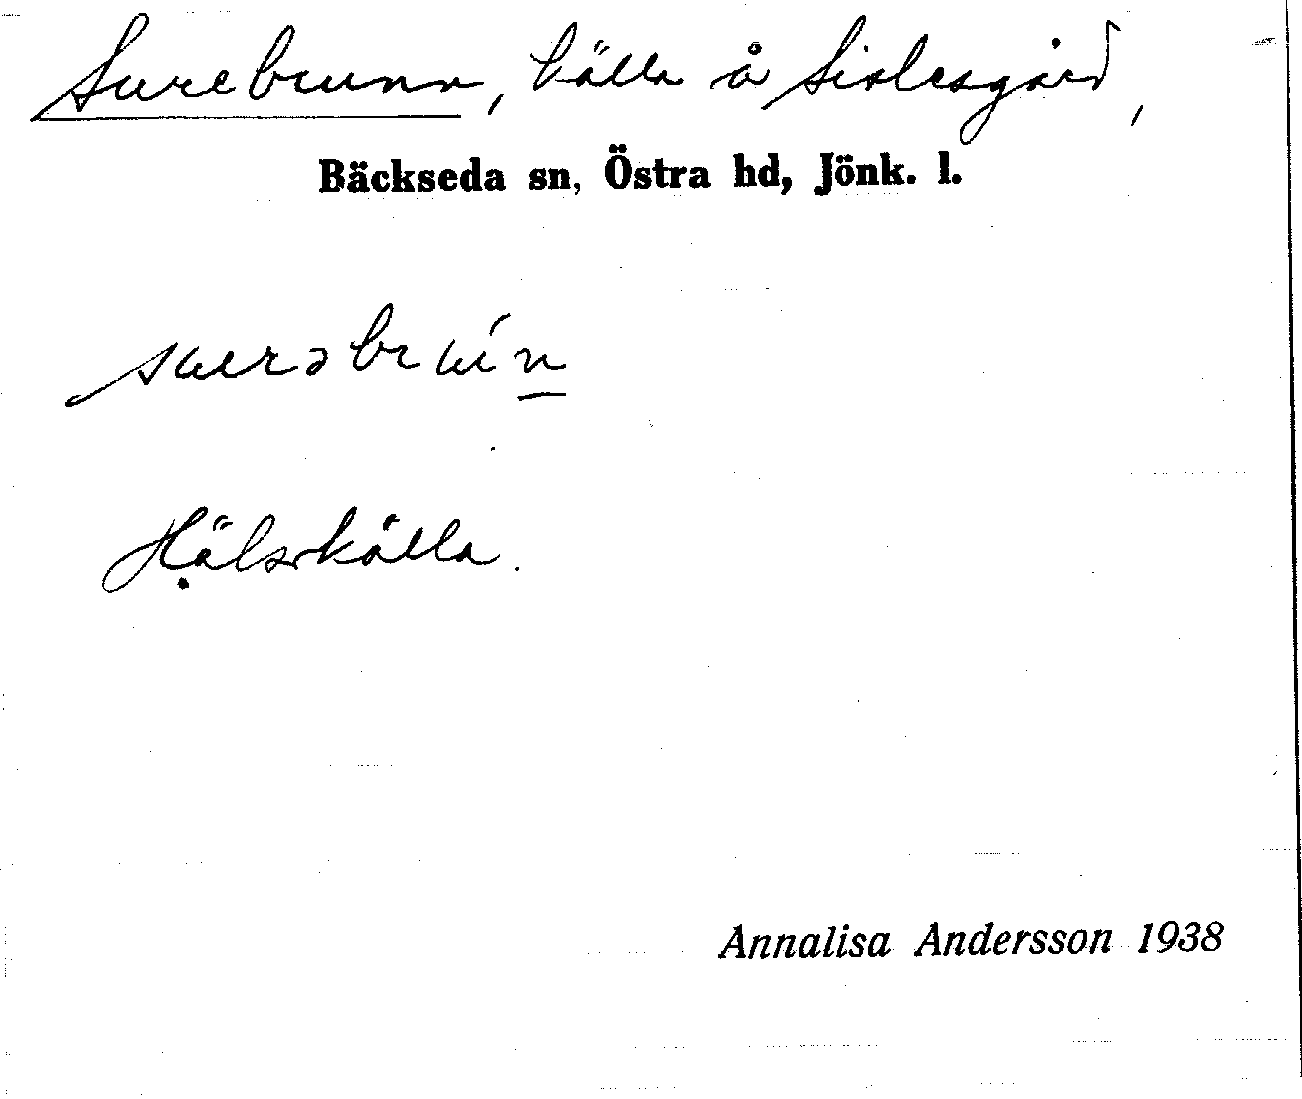 Surebrunn, källa å Sislesgård,
Bäckseda sn, Östra hd, Jönk. l.
Hälsokälla.
Annalisa Andersson 1938